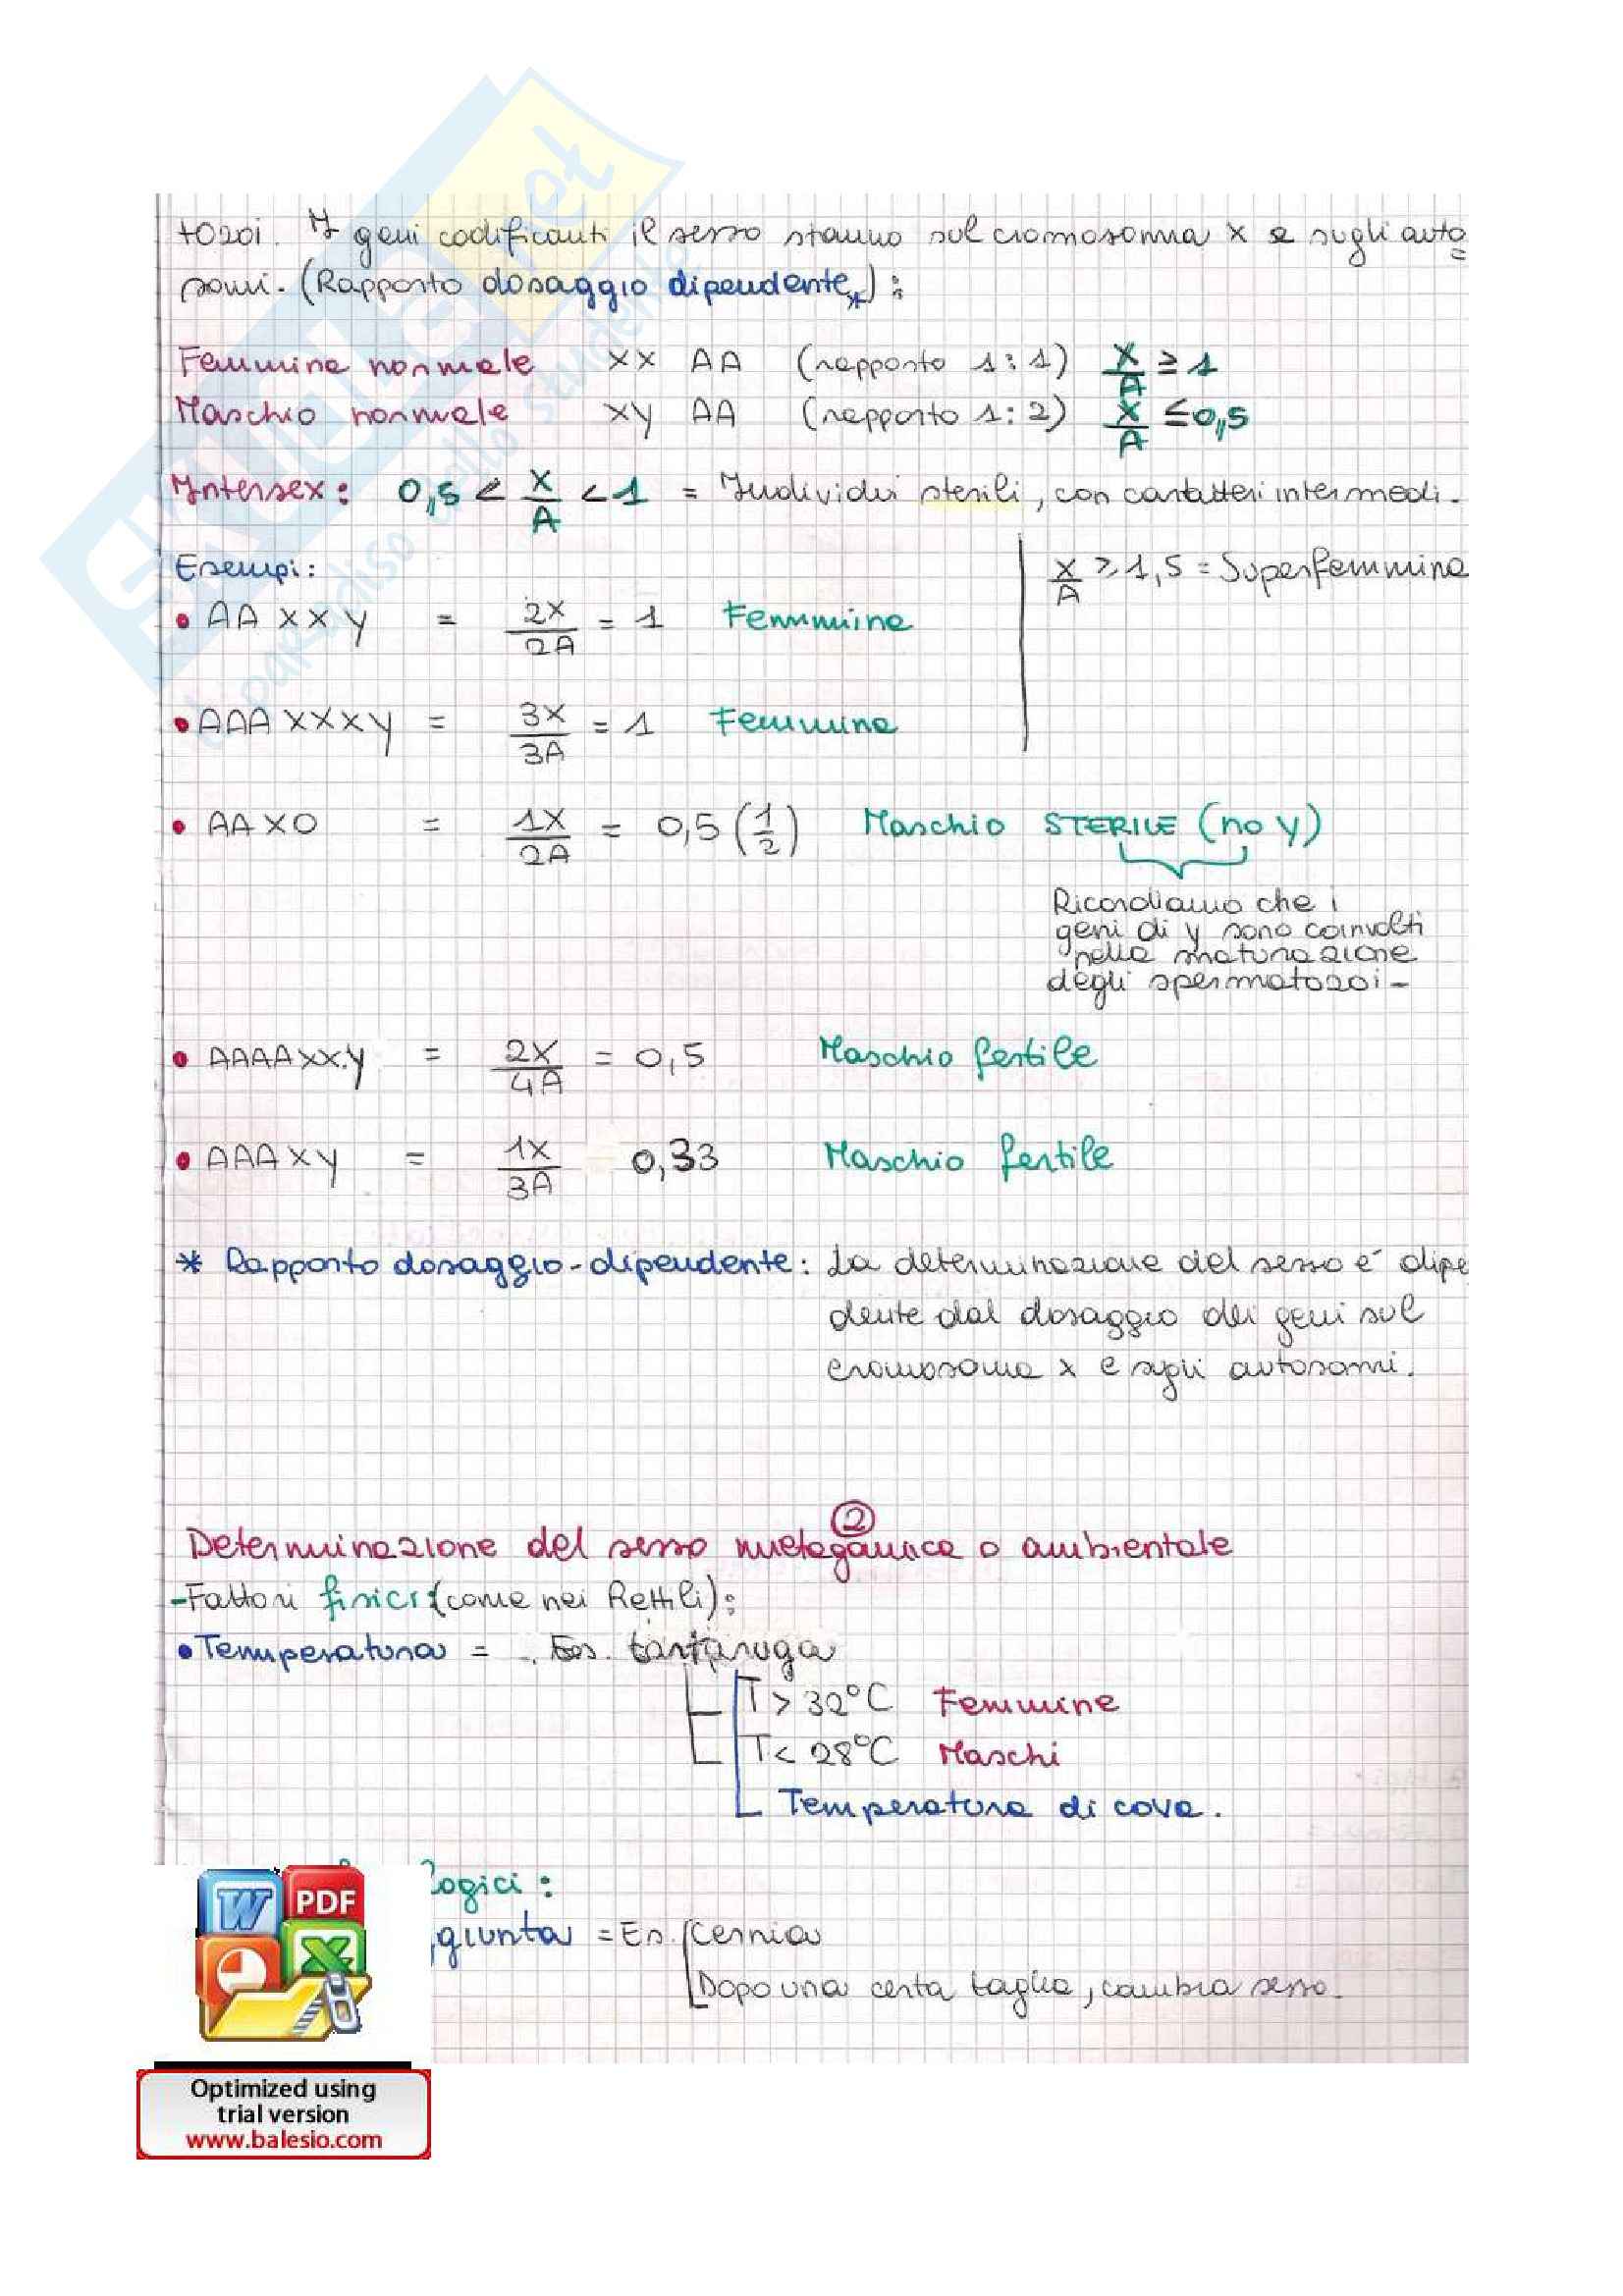 tozoi. I geni codificanti il sesso stanno sul cromosoma X e sugli auto
somi. (Rapporto dosaggio dipendente*):
Femmina normale XX AA (rapporto 1:1) X/A ≥ 1
Maschio normale XY AA (rapporto 1:2) X/A ≤ 0,5
Intersex: 0,5 < X/A < 1 = Individui sterili, con caratteri intermedi.
Esempi:
X/A ≥ 1,5 = Superfemmina
• AA XXY = 2X/2A = 1 Femmina
• AAA XXXY = 3X/3A = 1 Femmina
• AA XO = 1X/2A = 0,5 (1/2) Maschio STERILE (no Y)
Ricordiamo che i
geni di Y sono coinvolti
nella maturazione
degli spermatozoi-
• AAAA XXY = 2X/4A = 0,5 Maschio fertile
• AAA XY = 1X/3A 0,33 Maschio fertile
* Rapporto dosaggio-dipendente: La determinazione del sesso è dipe
dente dal dosaggio dei geni sul
cromosoma X e sugli autosomi.
2
Determinazione del sesso metagamica o ambientale
-Fattori fisici (come nei Rettili):
• Temperatura = Es. tartaruga
T > 32°C Femmine
T < 28°C Maschi
Temperatura di cova.
logici:
giunta = Es. Cernia
Dopo una certa taglia, cambia sesso.
W PDF
X
Optimized using
trial version
www.balesio.com
SKUOLA.net
il paradiso dello studente